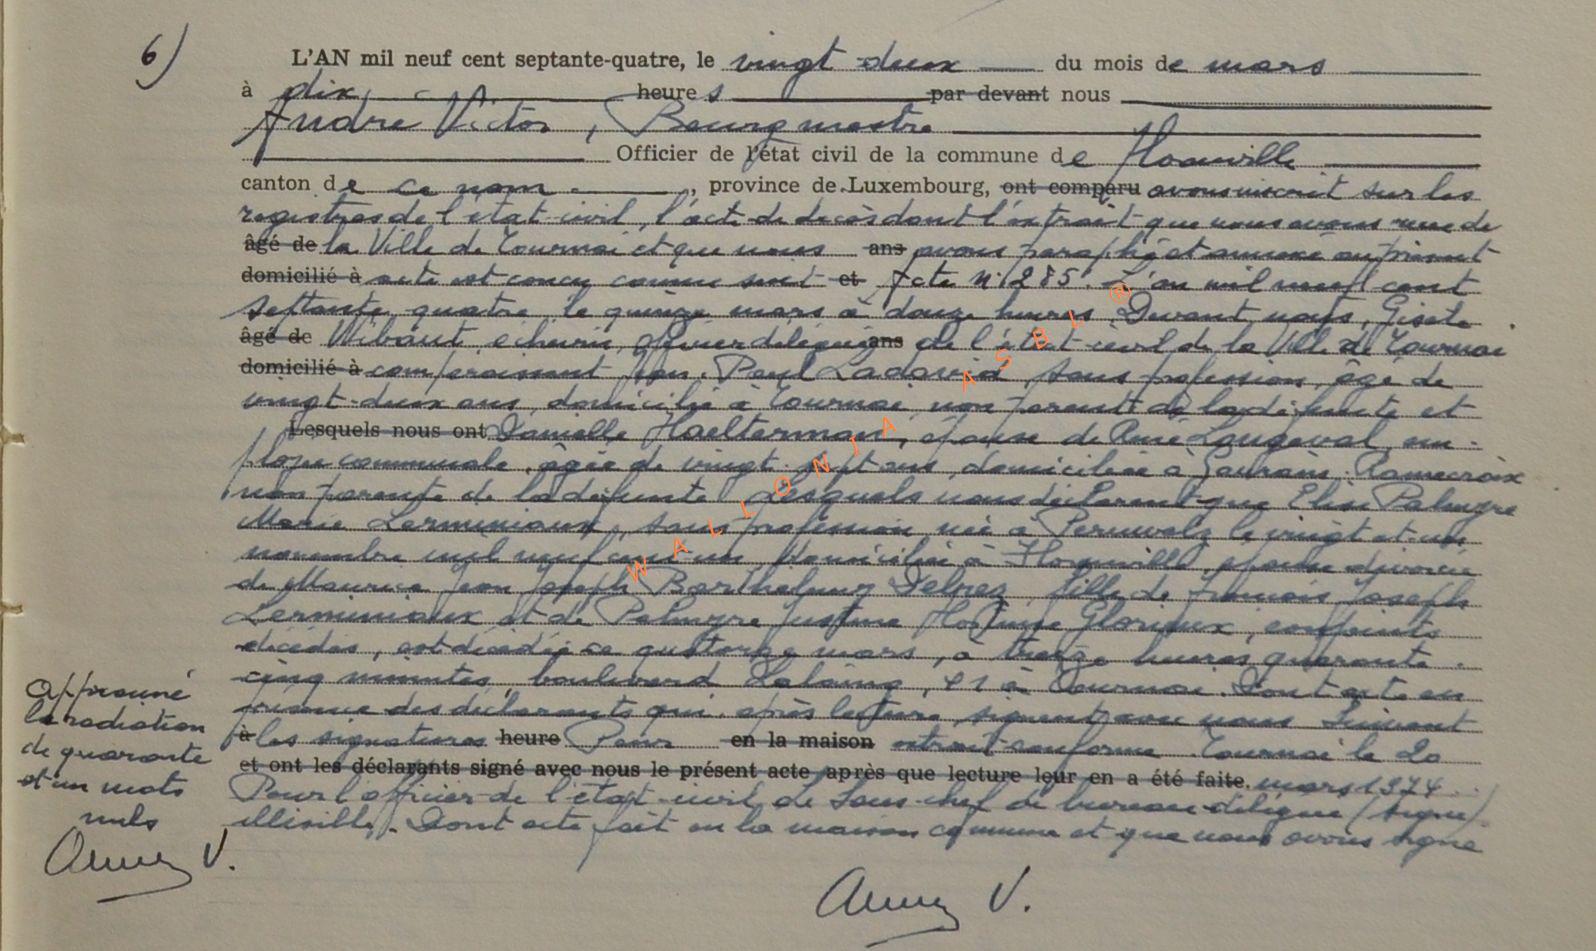 6)
L'AN mil neuf cent septante-quatre, le vingt deux du mois de mars
à dix heures par devant nous
André Victor, Bourgmestre
Officier de l'état civil de la commune de Flamierge
canton de ce nom, province de Luxembourg, ont comparu avons inscrit sur les
registres de l'état civil, l'acte de décès dont l'extrait que nous avons reçu de
âgé de la Ville de Tournai et que nous ans avons paraphé et annexé au présent
domicilié à acte est conçu comme suit et Acte n° 285. L'an mil neuf cent
septante quatre, le quinze mars à douze heures. Devant nous, Gisèle
âgé de Wibaut, échevin, officier délégué ans de l'état-civil de la Ville de Tournai
domicilié à comparaissent Jean Paul Ladavid, sans profession, âgé de
vingt-deux ans, domicilié à Tournai non parent de la défunte et
Lesquels nous ont Danielle Haelterman, épouse de René Langeval, em-
ployée communale, âgée de vingt sept ans domiciliée à Gaurain-Ramecroix
non parente de la défunte. Lesquels nous déclarent que Elise Palmyre
Marie Lerminiaux, sans profession, née à Peruwelz le vingt et un
novembre mil neuf cent un domiciliée à, épouse divorcée
de Maurice Jean Joseph Barthelemy Delrez, fille de François Joseph
Lerminiaux et de Palmyre Justine Glorieux, conjoints
décédés, est décédée ce quatorze mars, à treize heures quarante-
cinq minutes, boulevard Lalaing, à Tournai. Dont acte en
présence des déclarants qui, après lecture, signent avec nous Suivent
à les signatures heure Pour en la maison extrait conforme. Tournai le 20
et ont les déclarants signé avec nous le présent acte après que lecture leur en a été faite. mars 1974.
Pour l'officier de l'état-civil, Le Sous-chef de bureau délégué (signé)
illisible. Dont acte fait en la maison commune et que nous avons signé
Approuvé
la radiation
de quarante
et un mots
nuls
V.
V.
WALLONIA ASBL ®